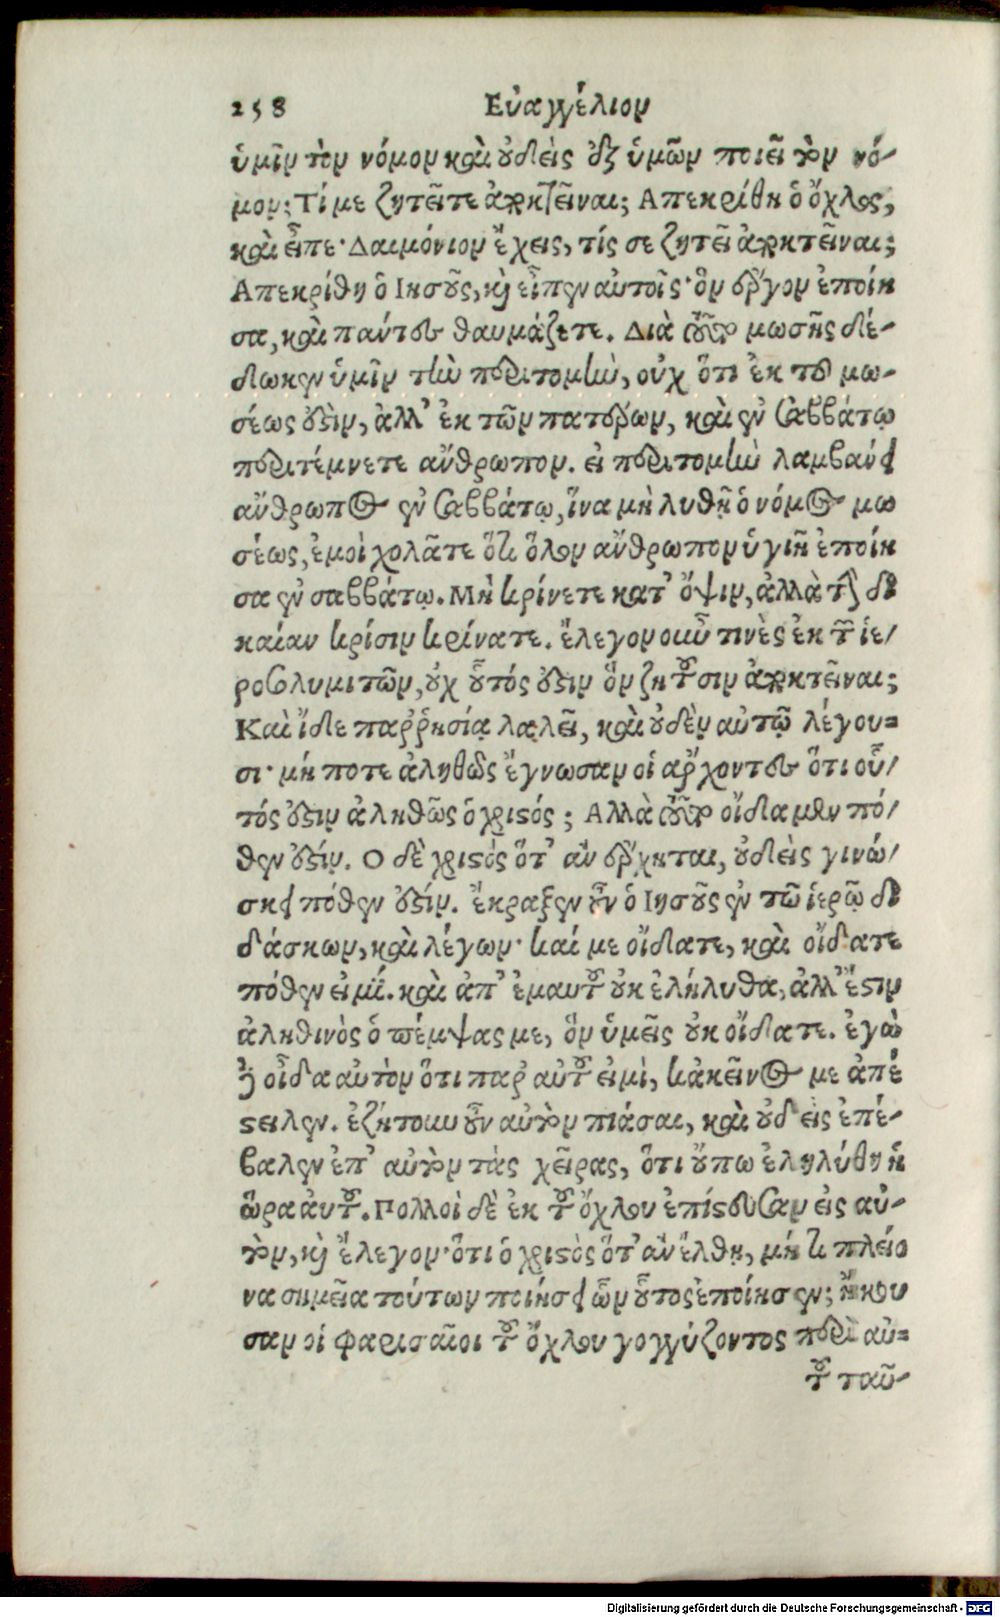 258 Εὐαγγέλιον
ὑμῖν τὸν νόμον καὶ οὐδεὶς ἐξ ὑμῶν ποιεῖ τὸν νό-
μον; Τί με ζητεῖτε ἀποκτεῖναι; Απεκρίθη ὁ ὄχλος,
καὶ εἶπε· Δαιμόνιον ἔχεις, τίς σε ζητεῖ ἀποκτεῖναι;
Απεκρίθη ὁ Ιησοῦς, καὶ εἶπεν αὐτοῖς· ὃν ἔργον ἐποίη
σα, καὶ πάντες θαυμάζετε. Διὰ τοῦτο μωσῆς δέ-
δωκεν ὑμῖν τὴν περιτομὴν, οὐχ ὅτι ἐκ τοῦ μω-
σέως ἐστὶν, ἀλλ' ἐκ τῶν πατέρων, καὶ ἐν σαββάτῳ
περιτέμνετε ἄνθρωπον. εἰ περιτομὴν λαμβάνει
ἄνθρωπος ἐν σαββάτῳ, ἵνα μὴ λυθῇ ὁ νόμος μω
σέως, ἐμοὶ χολᾶτε ὅτι ὅλον ἄνθρωπον ὑγιῆ ἐποίη
σα ἐν σαββάτῳ. Μὴ κρίνετε κατ' ὄψιν, ἀλλὰ τὴν δι
καίαν κρίσιν κρίνατε. ἔλεγον οὖν τινὲς ἐκ τῶν ἱε/
ροσολυμιτῶν, οὐχ οὗτός ἐστιν ὃν ζητοῦσιν ἀποκτεῖναι;
Καὶ ἴδε παῤῥησίᾳ λαλεῖ, καὶ οὐδὲν αὐτῷ λέγου=
σι· μή ποτε ἀληθῶς ἔγνωσαν οἱ ἄρχοντες ὅτι οὗ/
τός ἐστιν ἀληθῶς ὁ χριστός; Αλλὰ τοῦτον οἴδαμεν πό/
θεν ἐστίν. Ο δὲ χριστὸς ὅτ' ἂν ἔρχηται, οὐδεὶς γινώ/
σκει πόθεν ἐστίν. ἔκραξεν οὖν ὁ Ιησοῦς ἐν τῶ ἱερῷ δι
δάσκων, καὶ λέγων· καί με οἴδατε, καὶ οἴδατε
πόθεν εἰμί. καὶ ἀπ' ἐμαυτοῦ οὐκ ἐλήλυθα, ἀλλ' ἔστιν
ἀληθινὸς ὁ πέμψας με, ὃν ὑμεῖς οὐκ οἴδατε. ἐγὼ
δὲ οἶδα αὐτὸν ὅτι παρ' αὐτοῦ εἰμὶ, κἀκεῖνος με ἀπέ
στειλεν. ἐζήτουν οὖν αὐτὸν πιάσαι, καὶ οὐδεὶς ἐπέ-
βαλεν ἐπ' αὐτὸν τὰς χεῖρας, ὅτι οὔπω ἐληλύθη ἡ
ὥρα ἀυτοῦ. Πολλοὶ δὲ ἐκ τοῦ ὄχλου ἐπίστευσαν εἰς αὐ-
τὸν, καὶ ἔλεγον· ὅτι ὁ χριστὸς ὅτ' ἂν ἔλθῃ, μή τι πλείο
να σημεῖα τούτων ποιήσει ὧν οὗτος ἐποίησεν; ἤκου
σαν οἱ Φαρισαῖοι τοῦ ὄχλου γογγύζοντος περὶ αὐ=
τοῦ ταῦ-
Digitalisierung gefördert durch die Deutsche Forschungsgemeinschaft - DFG